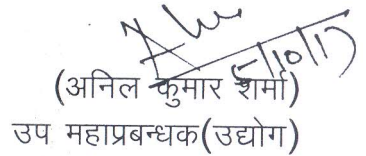 5/10/17
(अनिल कुमार शर्मा)
उप महाप्रबन्धक(उद्योग)